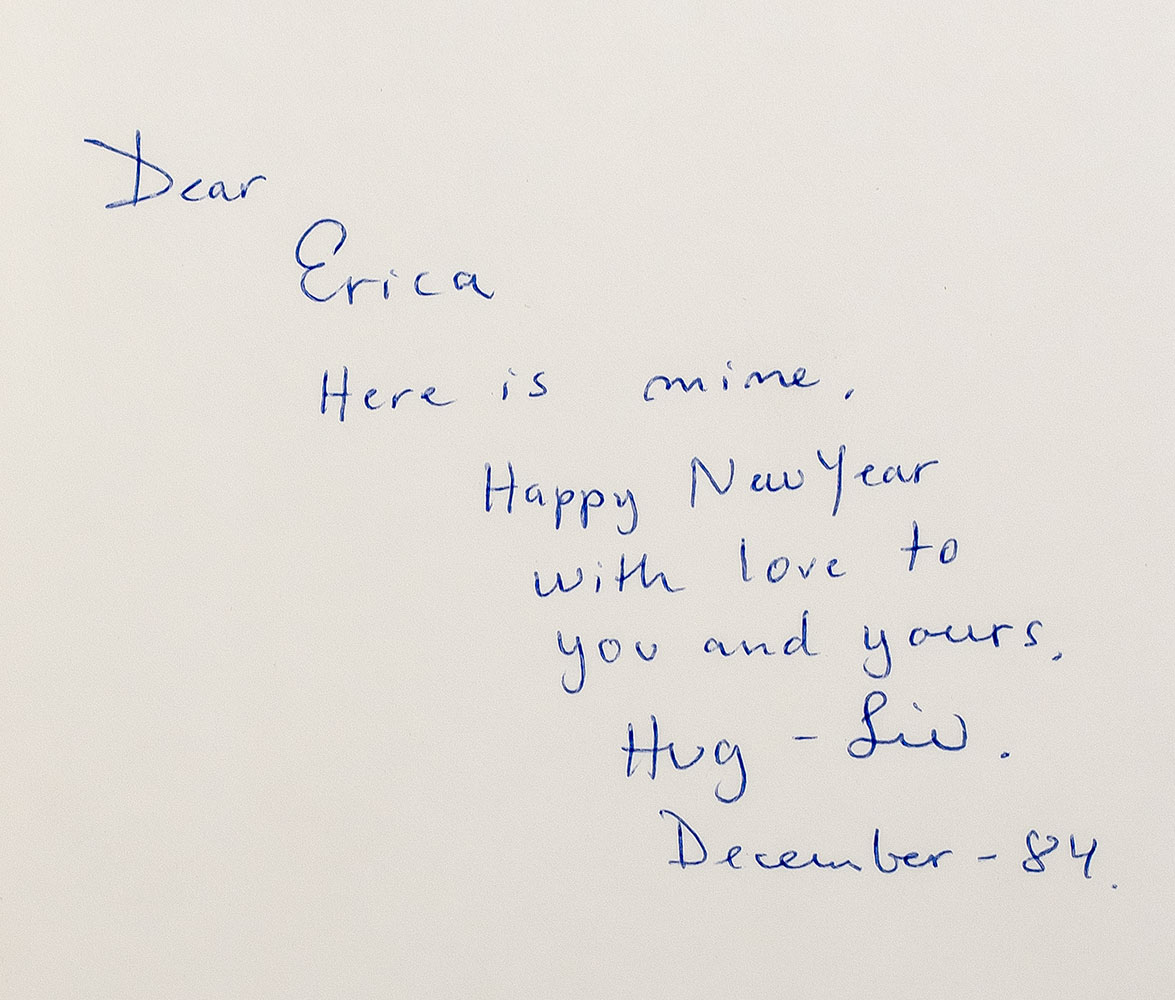 Dear
Erica
Here is mine.
Happy New Year
with love to
you and yours.
Hug - Liv.
December - 84.